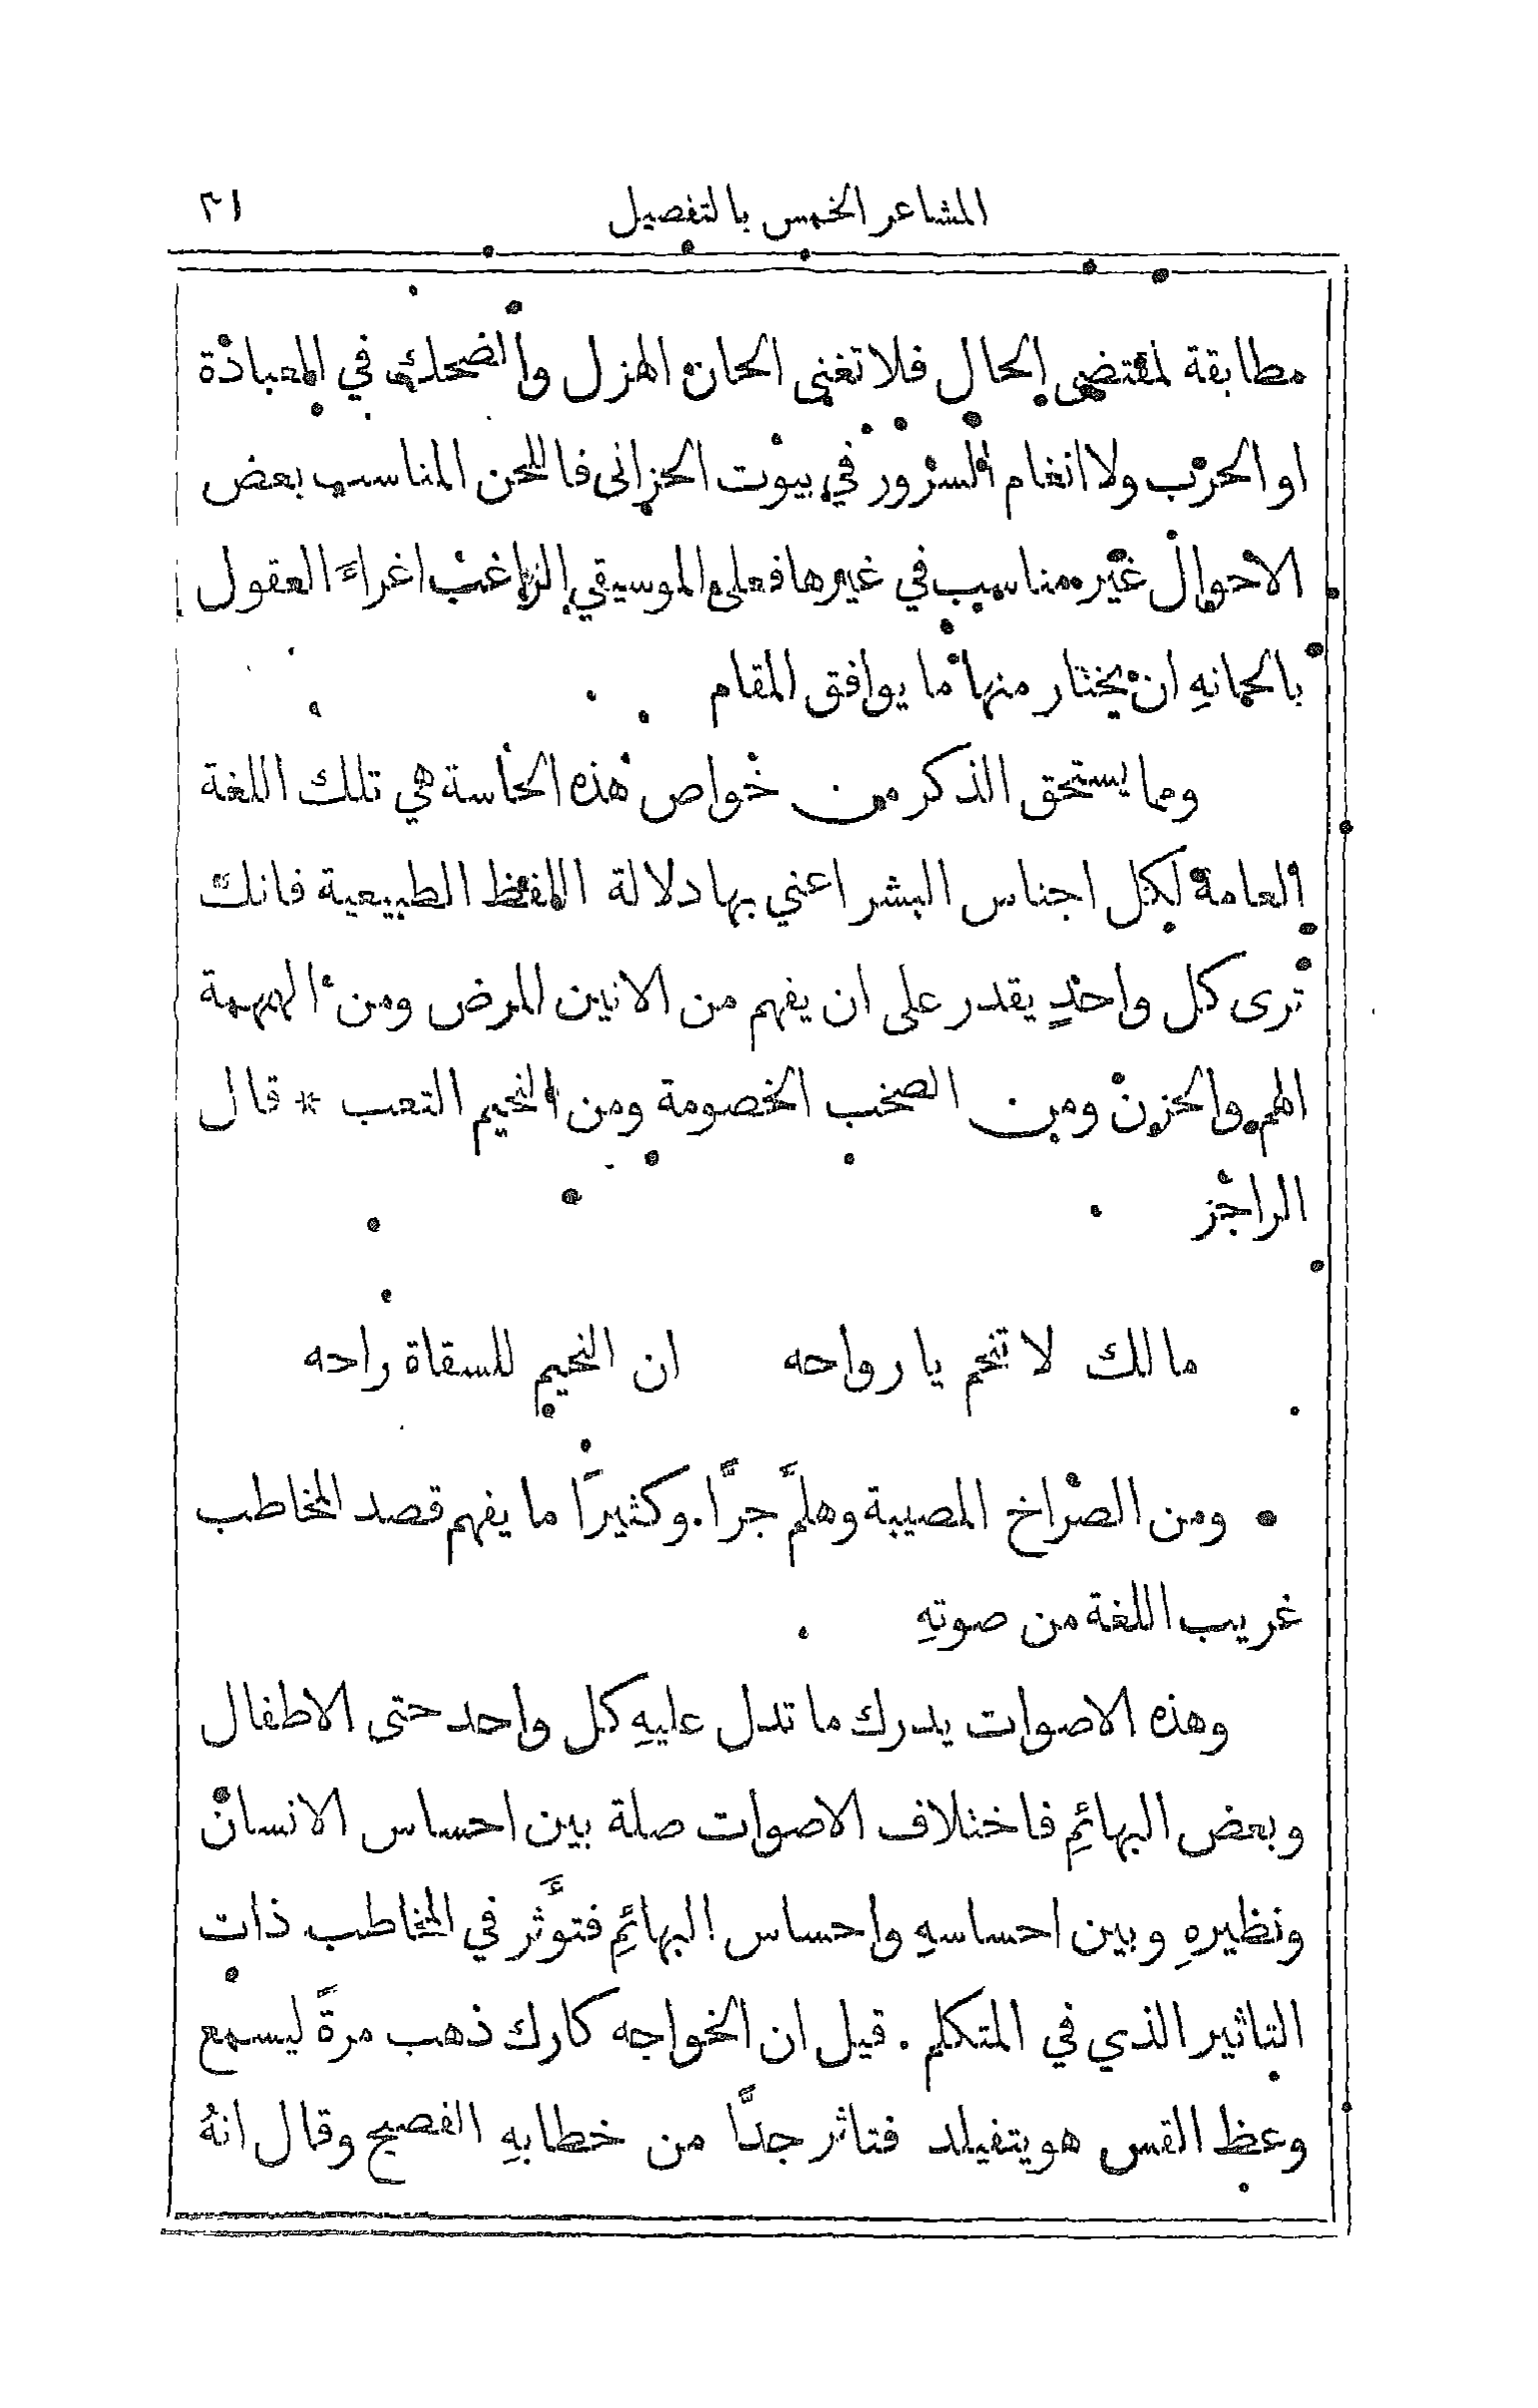 المشاعر الخمس بالتفصيل ٢١
مطابقة لمقتضى الحال فلا تغنى الحان الهزل والضحك في العبادة
او الحرب ولا انغام السرور في بيوت الحزانى فاللحن المناسب بعض
الاحوال غير مناسب في غيرها فعلى الموسيقي الراغب اغراءَ العقول
بالحانهِ ان يختار منها ما يوافق المقام
ومما يستحق الذكر من خواص هذه الحاسة هي تلك اللغة
العامة لكل اجناس البشر اعني بها دلالة اللفظ الطبيعية فانك
ترى كل واحدٍ يقدر على ان يفهم من الانين المرض ومن الهمهمة
الهم والحزن ومن الصخب الخصومة ومن النحيم التعب * قال
الراجز
مالك لا تنحم يا رواحه ان النحيم للسقاة راحه
ومن الصراخ المصيبة وهلمَّ جرًّا. وكثيرًا ما يفهم قصد المخاطب
غريب اللغة من صوتهِ
وهذه الاصوات يدرك ما تدل عليهِ كل واحد حتى الاطفال
وبعض البهائمِ فاختلاف الاصوات صلة بين احساس الانسان
ونظيرهِ وبين احساسهِ واحساس البهائمِ فتوَّثر في المخاطب ذات
التاثير الذي في المتكلم. قيل ان الخواجه كارك ذهب مرةً ليسمع
وعظ القس هويتفيلد فتاثر جدًّا من خطابهِ الفصيح وقال انهُ